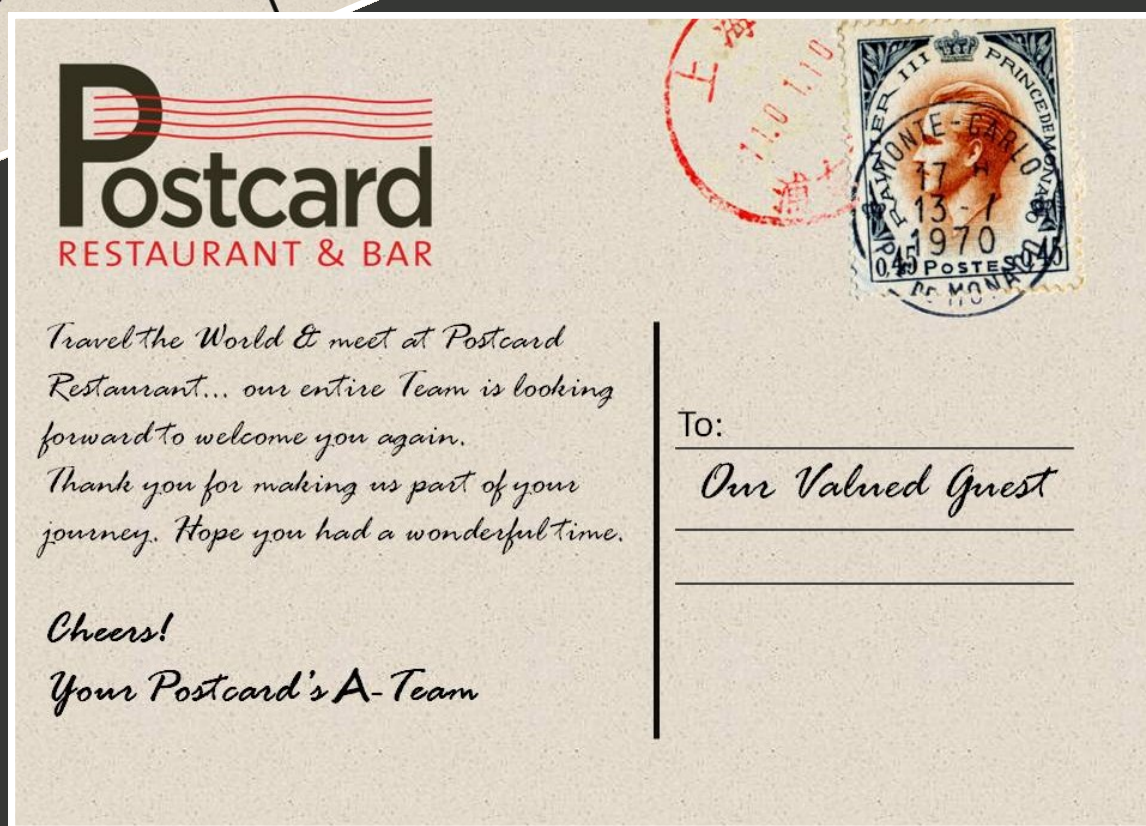 Postcard
RESTAURANT & BAR
上海
11.01.10
浦
RAINIER III PRINCE DE MONACO
MONTE-CARLO
17 H
13-1
1970
0,45 POSTES 0,45
Pté DE MONACO
Travel the World & meet at Postcard
Restaurant... our entire Team is looking
forward to welcome you again.
Thank you for making us part of your
journey. Hope you had a wonderful time.
Cheers!
Your Postcard's A-Team
To:
Our Valued Guest